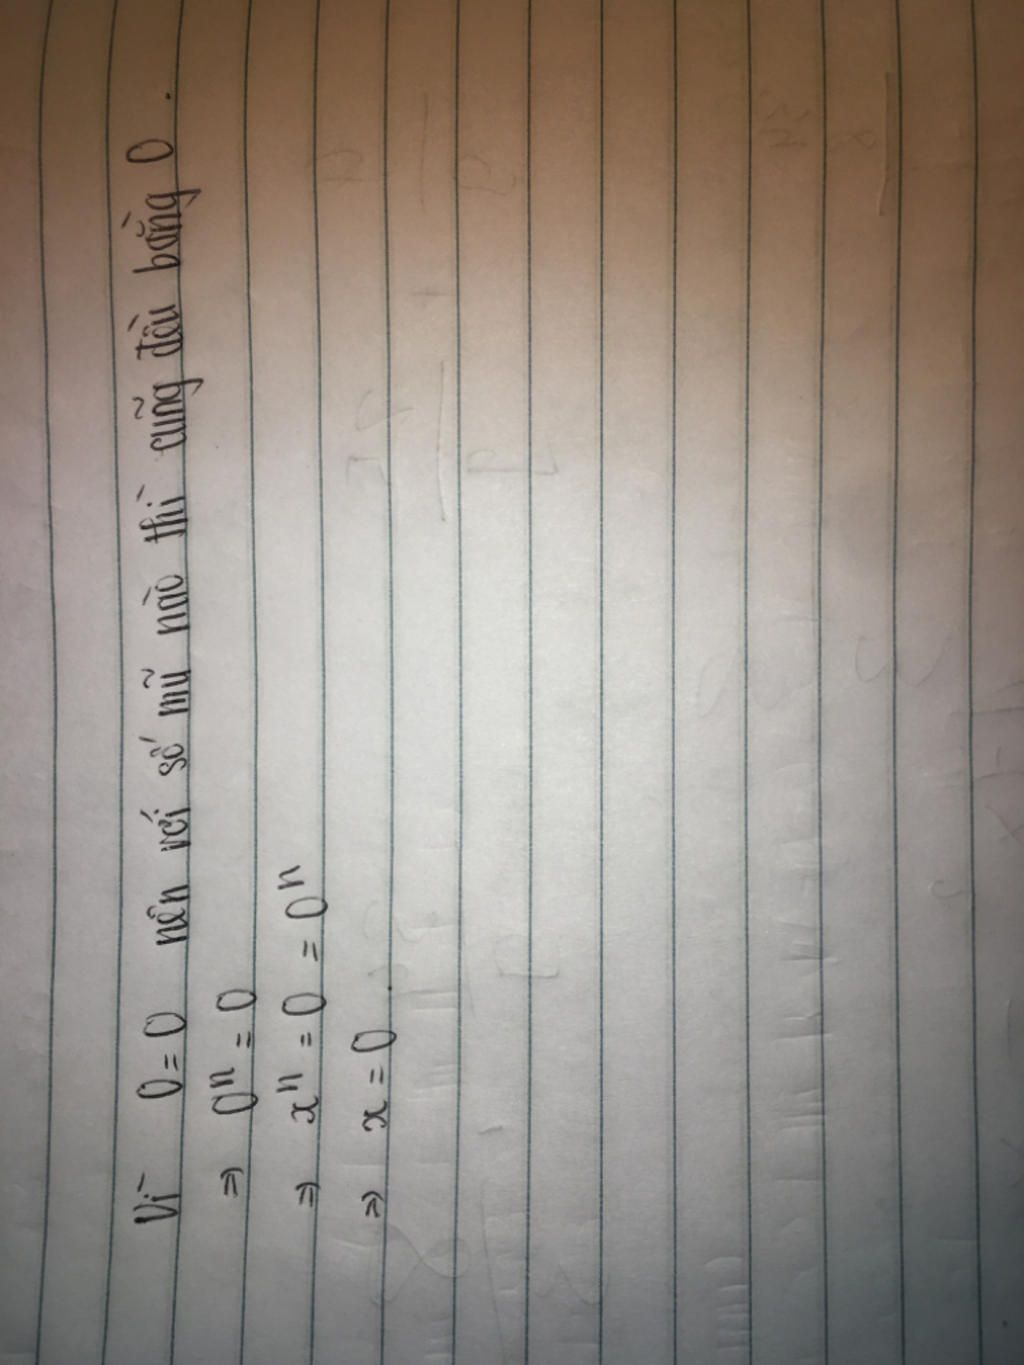 Vì 0 = 0 nên với số mũ nào thì cũng đều bằng 0.
⇒ 0ⁿ = 0
⇒ xⁿ = 0 = 0ⁿ
⇒ x = 0.